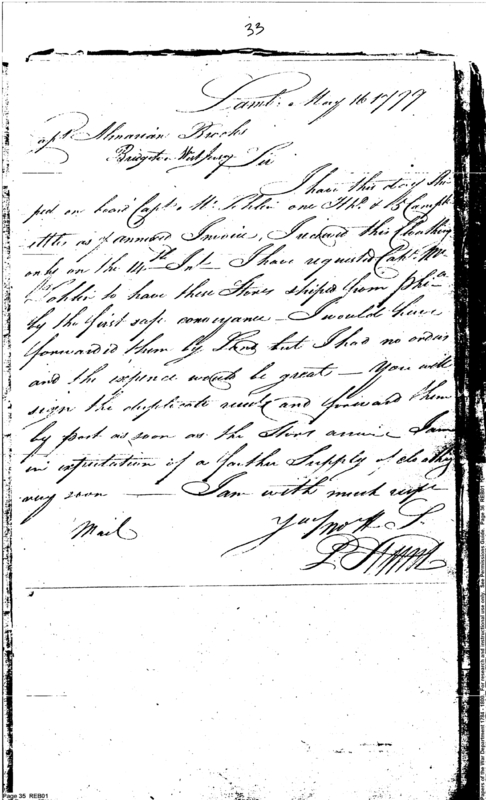 33
Lamb: May 16 1799
Capt: Almarian Brooks
Bridgeton West Jersey Sir
I have this day Ship
ped on board Capt: Mc. one Hhd & 15 Camp K
ettles as annexed Invoice, I received this Cloathing
only on the 14th Inst. I have requested Capt. Mc
to have these Stores shiped from Phia
by the first safe conveyance — I would have
forwarded them by Land but I had no orders
and the expence would be great — You will
sign the duplicate receipt and forward them
by post as soon as the Stores arrive I am
in expectation of a farther Supply of cloathg
very soon — I am with much respt
Your mo H. S.
Mail
Page 35 REB01
Papers of the War Department 1784 - 1800. For research and instructional use only. See Permissions Guide. Page 35 REB01